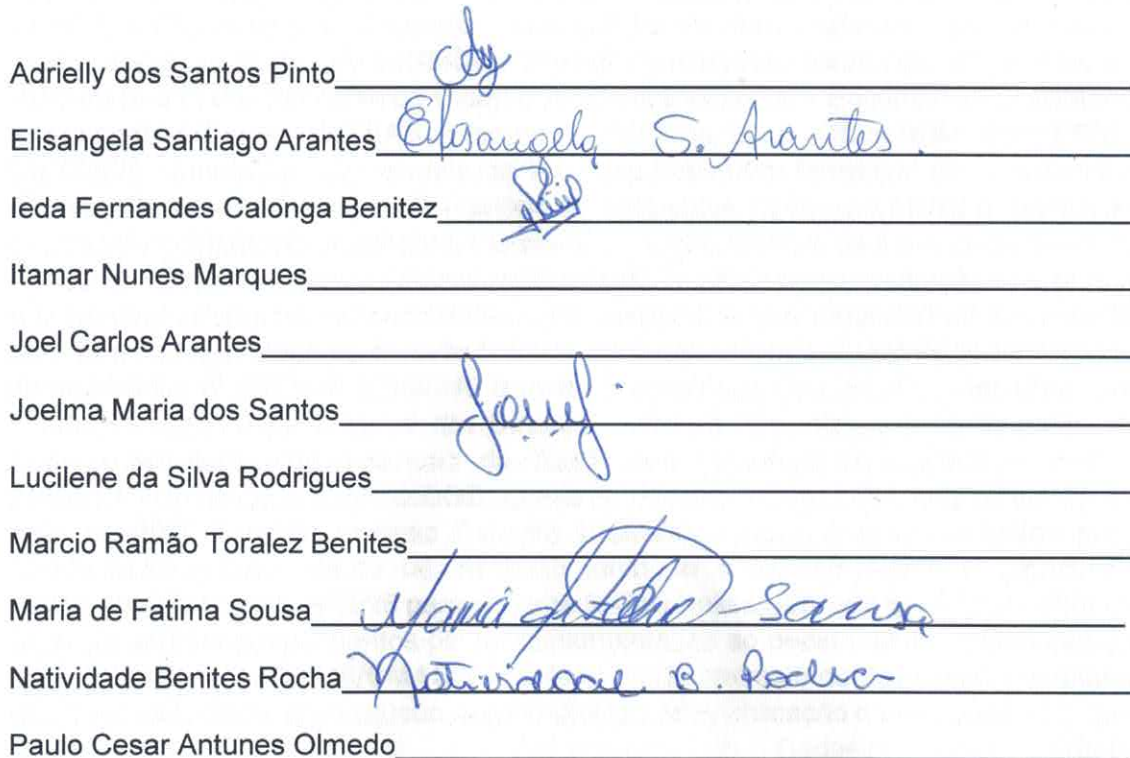 Adrielly dos Santos Pinto
Elisangela Santiago Arantes Elisangela S. Arantes.
Ieda Fernandes Calonga Benitez
Itamar Nunes Marques
Joel Carlos Arantes
Joelma Maria dos Santos
Lucilene da Silva Rodrigues
Marcio Ramão Toralez Benites
Maria de Fatima Sousa Maria de Fatima Sousa
Natividade Benites Rocha Natividade B. Rocha
Paulo Cesar Antunes Olmedo